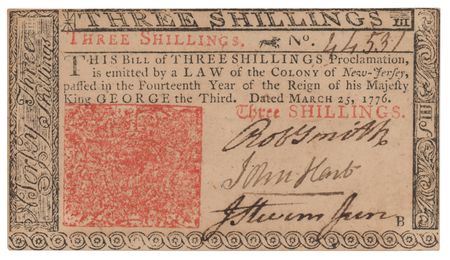 THREE SHILLINGS III
THREE SHILLINGS. No. 44531
THIS BILL of THREE SHILLINGS, Proclamation,
is emitted by a LAW of the COLONY of New-Jersey,
passed in the Fourteenth Year of the Reign of his Majesty
King GEORGE the Third. Dated MARCH 25, 1776.
Three SHILLINGS.
Rob Smith
John Hart
J Stevens Junr
B
Three Shillings